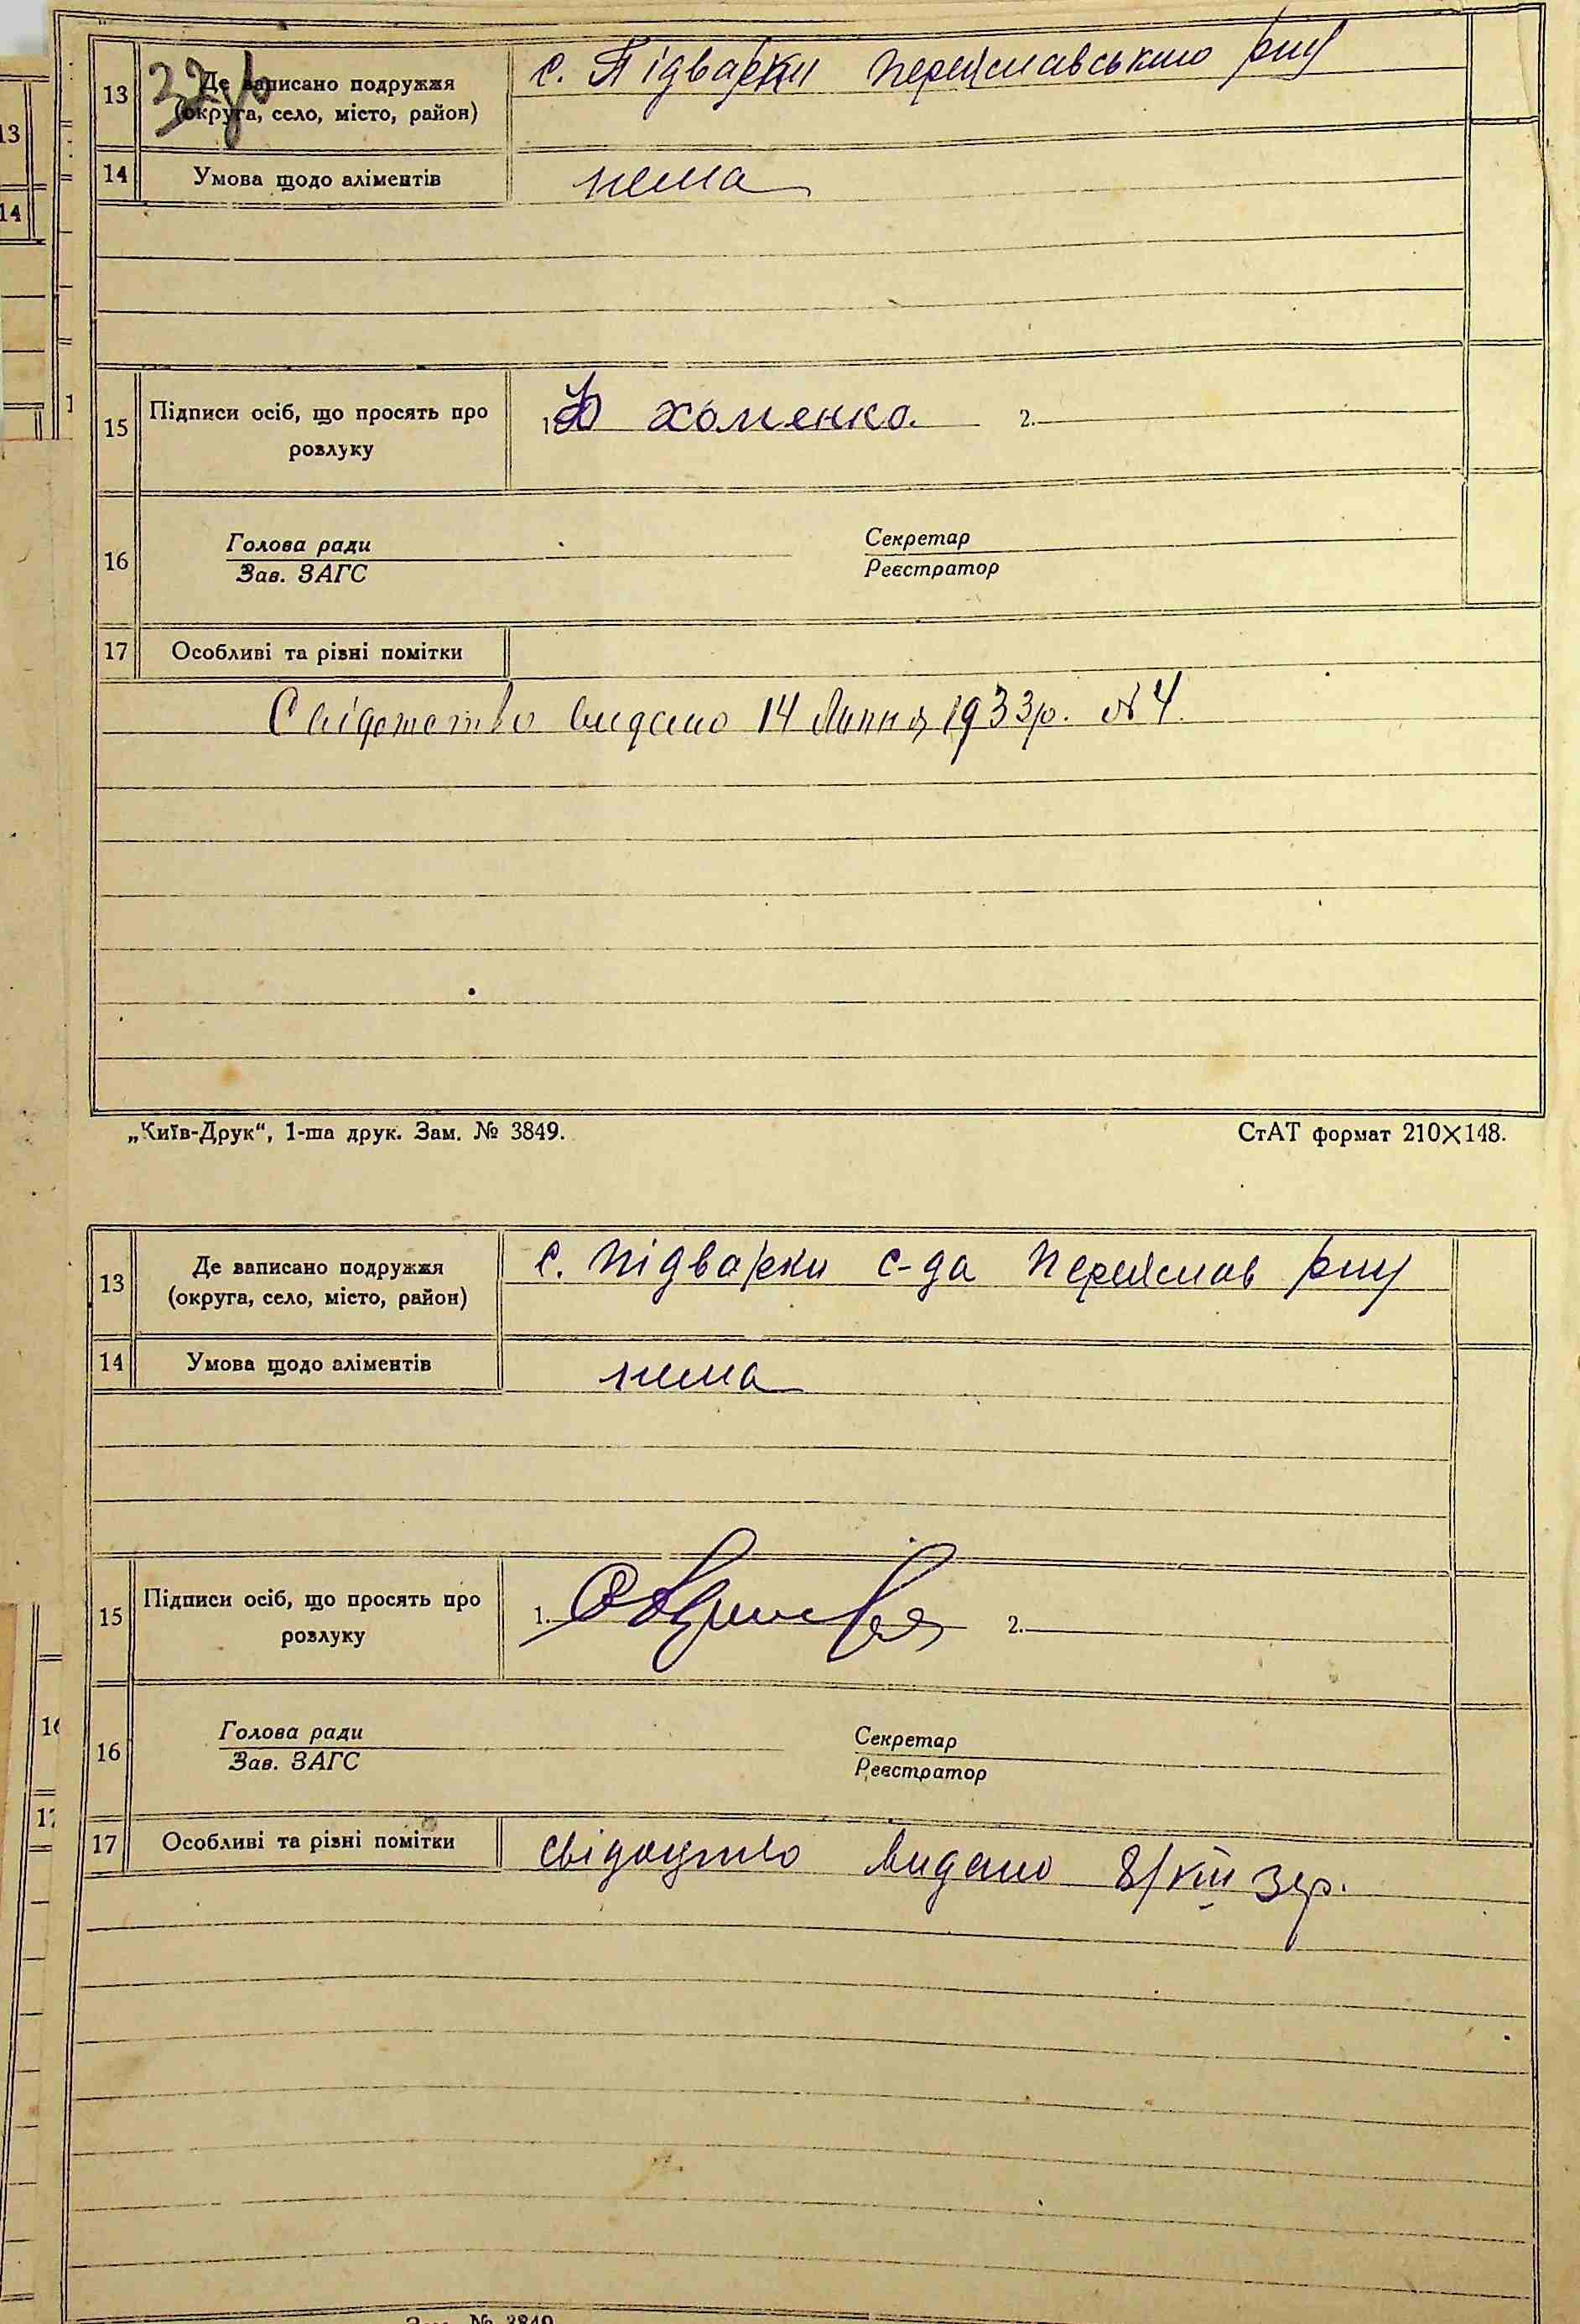 13 Де записано подружжя с. Підварки Переяславського р-ну
32 зв
(округа, село, місто, район)
14 Умова щодо аліментів нема
15 Підписи осіб, що просять про 1. Хоменко. 2.
розлуку
16 Голова ради Секретар
Зав. ЗАГС Реєстратор
17 Особливі та різні помітки
Свідотство видано 14 Липня 1933р. №4.
„Київ-Друк“, 1-ша друк. Зам. № 3849. СтАТ формат 210×148.
13 Де записано подружжя с. Підварки с-да Переяслав р-ну
(округа, село, місто, район)
14 Умова щодо аліментів нема
15 Підписи осіб, що просять про 1. 2.
розлуку
16 Голова ради Секретар
Зав. ЗАГС Реєстратор
17 Особливі та різні помітки видано
Зам. № 3849
13
14
1
16
17